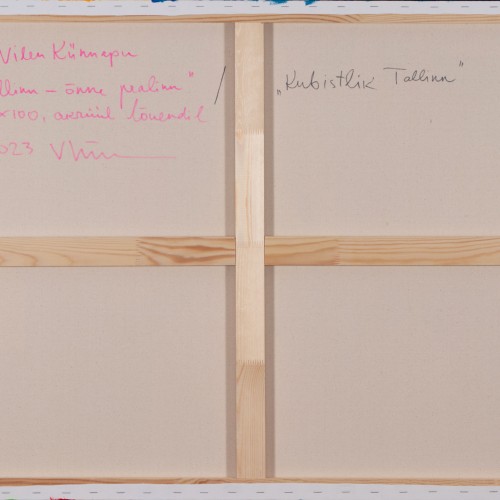 Vilen Künnapu
llinn – õnne pealinn" /
x100, akrüül lõuendil
023
„Kubistlik Tallinn"